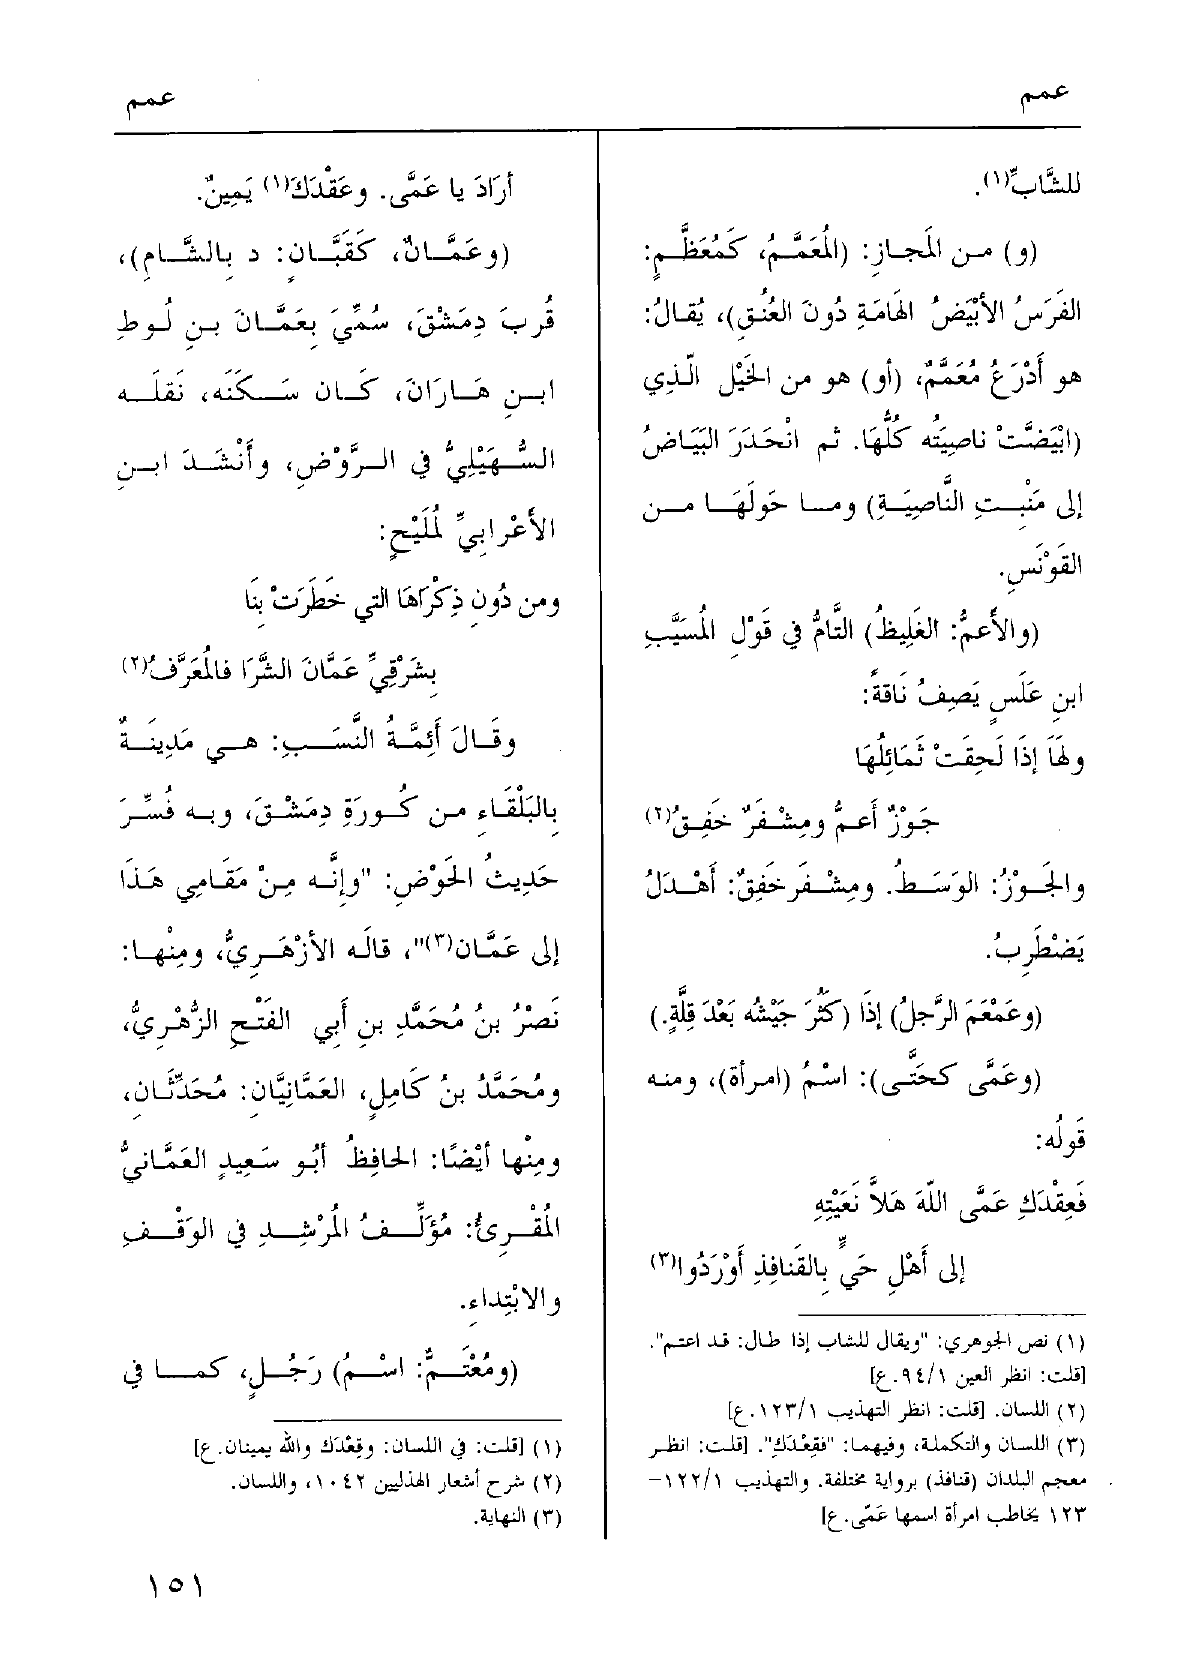 عمم
عمم
للشَّابِّ(١).
(و) من المَجاز: (المُعَمَّمُ، كَمُعَظَّمٍ:
الفَرَسُ الأَبْيَضُ الهَامَةِ دُونَ العُنُقِ)، يُقالُ:
هو أَدْرَعُ مُعَمَّمٌ، (أو) هو من الخَيْلِ الَّذِي
(ابْيَضَّتْ ناصِيَتُه كُلُّهَا. ثم انْحَدَرَ البَيَاضُ
إلى مَنْبِتِ النَّاصِيَةِ) وما حَولَهَا من
القَوْنَسِ.
(والأَعمُّ: الغَلِيظُ) التَّامُّ في قَوْلِ المُسَيَّبِ
ابنِ عَلَسٍ يَصِفُ نَاقَةً:
ولهَا إذَا لَحِقَتْ ثَمَائِلُهَا
جَوْزٌ أَعمُّ ومِشْفَرٌ خَفِقُ(٢)
والجَوْزُ: الوَسَطُ. ومِشْفَر خَفِقٌ: أَهْدَلُ
يَضْطَرِبُ.
(وعَمْعَمَ الرَّجلُ) إذَا (كَثُرَ جَيْشُه بَعْدَ قِلَّةٍ.)
(وعَمَّى كحَتَّى): اسْمُ (امرأة)، ومنه
قَولُه:
فَعِقْدَكِ عَمَّى اللّهَ هَلاَّ نَعَيْتِهِ
إلى أَهْلِ حَيٍّ بِالقَنافِذِ أَوْرَدُوا(٣)
(١) نص الجوهري: "ويقال للشاب إذا طال: قد اعتم".
[قلت: انظر العين ٩٤/١.ع]
(٢) اللسان. [قلت: انظر التهذيب ١٢٣/١.ع]
(٣) اللسان والتكملة، وفيهما: "فقِعْدَكِ". [قلت: انظر
معجم البلدان (قنافذ) برواية مختلفة. والتهذيب ١٢٢/١–
١٢٣ يخاطب امرأة اسمها عَمّى.ع]
أرَادَ يا عَمَّى. وعَقْدَكَ(١) يَمِينٌ.
(وعَمَّانُ، كَقَبَّانٍ: د بالشَّامِ)،
قُربَ دِمَشْقَ، سُمِّيَ بِعَمَّانَ بنِ لُوطِ
ابنِ هَارَانَ، كَان سَكَنَه، نَقلَه
السُّهَيْلِيُّ في الرَّوْضِ، وأَنْشَدَ ابن
الأَعْرابِيِّ لمُلَيْحٍ:
ومن دُونِ ذِكْرَاهَا التي خَطَرَتْ بِنَا
بِشَرْقِيِّ عَمَّانَ الشَّرَا فالمُعَرَّفُ(٢)
وقَالَ أَئِمَّةُ النَّسَبِ: هي مَدِينَةٌ
بِالبَلْقَاءِ من كُورَةِ دِمَشْقَ، وبه فُسِّرَ
حَدِيثُ الحَوْضِ: "وإِنَّه مِنْ مَقَامِي هَذَا
إلى عَمَّان(٣)"، قالَه الأزْهَرِيُّ، ومِنْها:
نَصْرُ بنُ مُحَمَّدِ بنِ أَبي الفَتْحِ الزُّهْرِيُّ،
ومُحَمَّدُ بنُ كَامِلٍ، العَمَّانِيَّانِ: مُحَدِّثَانِ،
ومِنْها أَيْضًا: الحَافِظُ أبُو سَعِيدٍ العَمَّانيُّ
المُقْرِئُ: مُؤَلِّفُ المُرْشِدِ في الوَقْفِ
والابْتِداءِ.
(ومُعْتَمٌّ: اسْمُ) رَجُلٍ، كما في
(١) [قلت: في اللسان: وقِعْدَكَ والله يمينان.ع]
(٢) شرح أشعار الهذليين ١٠٤٢، واللسان.
(٣) النهاية.
١٥١